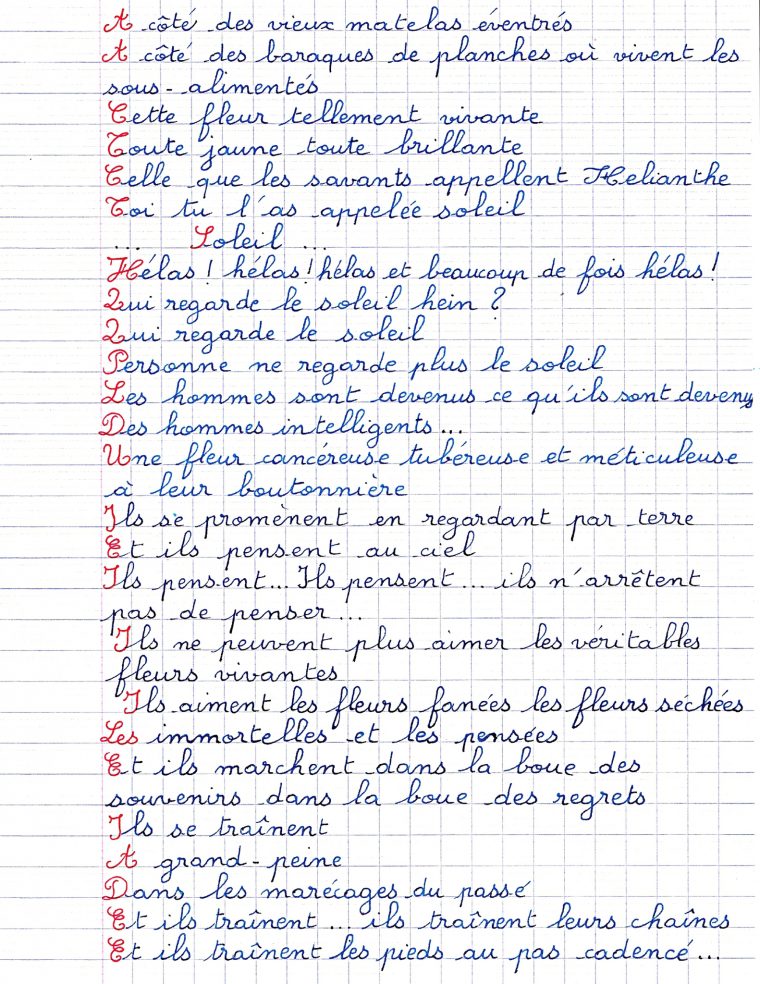 A côté des vieux matelas éventrés
A côté des baraques de planches où vivent les
sous-alimentés
Cette fleur tellement vivante
Toute jaune toute brillante
Celle que les savants appellent Helianthe
Toi tu l'as appelée soleil
... Soleil ...
Hélas ! hélas ! hélas et beaucoup de fois hélas !
Qui regarde le soleil hein ?
Qui regarde le soleil
Personne ne regarde plus le soleil
Les hommes sont devenus ce qu'ils sont devenus
Des hommes intelligents...
Une fleur cancéreuse tubéreuse et méticuleuse
à leur boutonnière
Ils se promènent en regardant par terre
Et ils pensent au ciel
Ils pensent... Ils pensent... ils n'arrêtent
pas de penser...
Ils ne peuvent plus aimer les véritables
fleurs vivantes
Ils aiment les fleurs fanées les fleurs séchées
Les immortelles et les pensées
Et ils marchent dans la boue des
souvenirs dans la boue des regrets
Ils se traînent
A grand-peine
Dans les marécages du passé
Et ils traînent ... ils traînent leurs chaînes
Et ils traînent les pieds au pas cadencé...